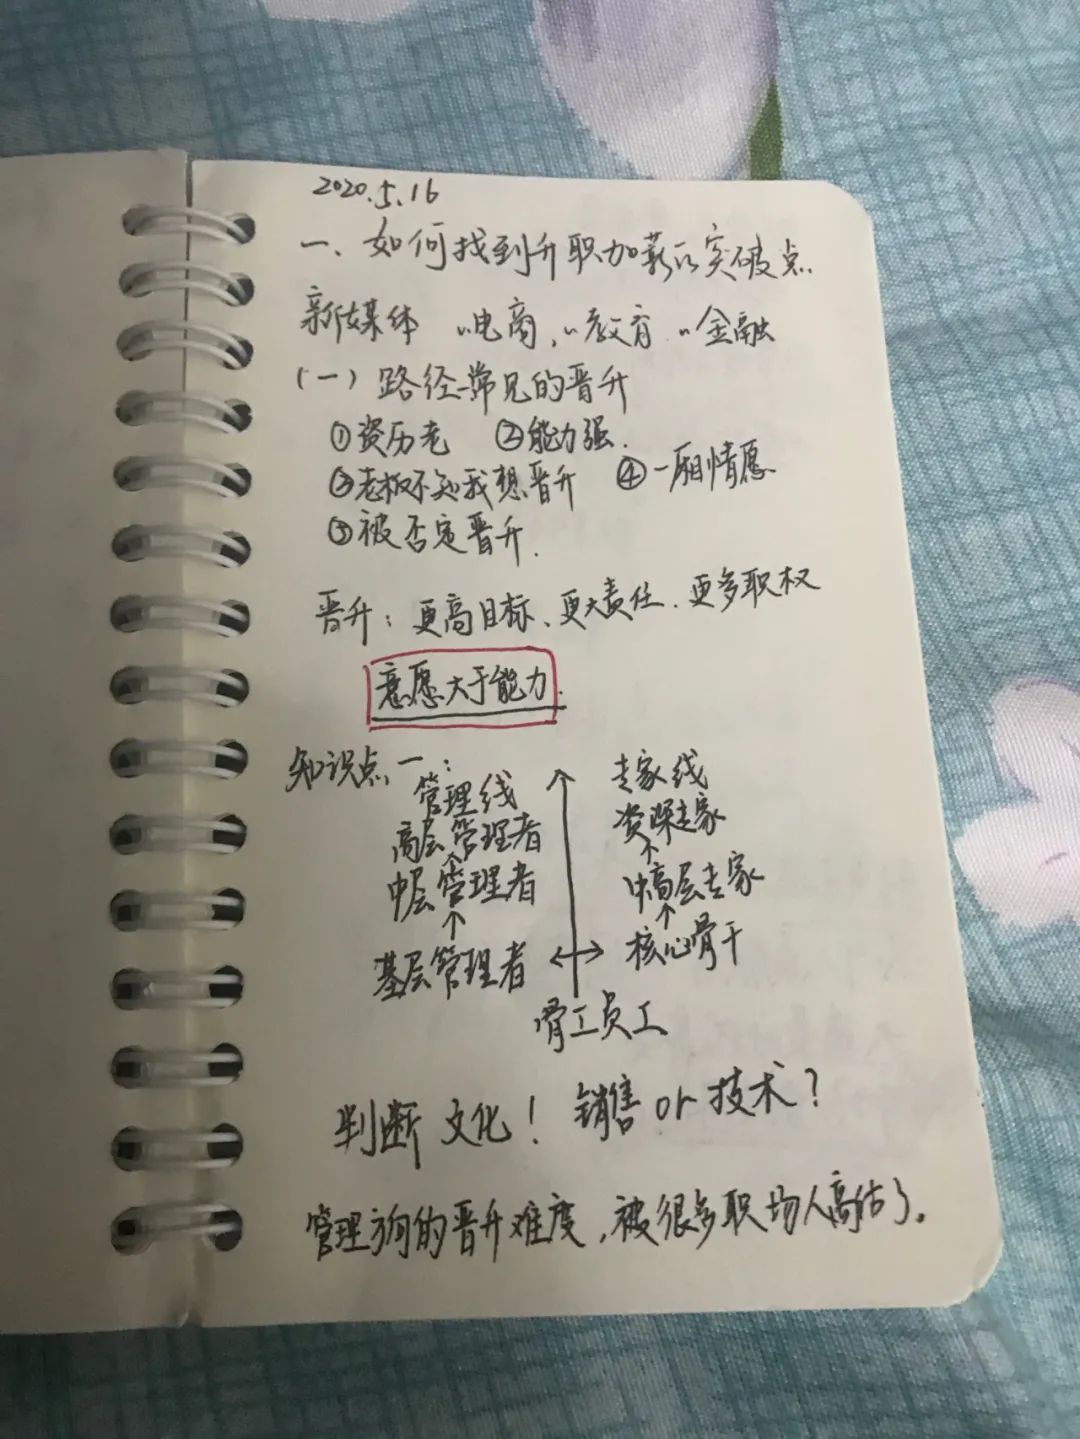 2020.5.16
一、如何找到升职加薪的突破点
新媒体 "电商, "教育 "金融
(一) 路径-常见的晋升
①资历老 ②能力强.
③老板不知我想晋升 ④一厢情愿
⑤被否定晋升.
晋升: 更高目标、更大责任.更多职权
意愿大于能力.
知识点一:
管理线 专家线
高层管理者 资深专家
中层管理者 中高层专家
基层管理者 核心骨干
骨工员工
判断文化! 销售or技术?
管理方向的晋升难度,被很多职场人高估了。